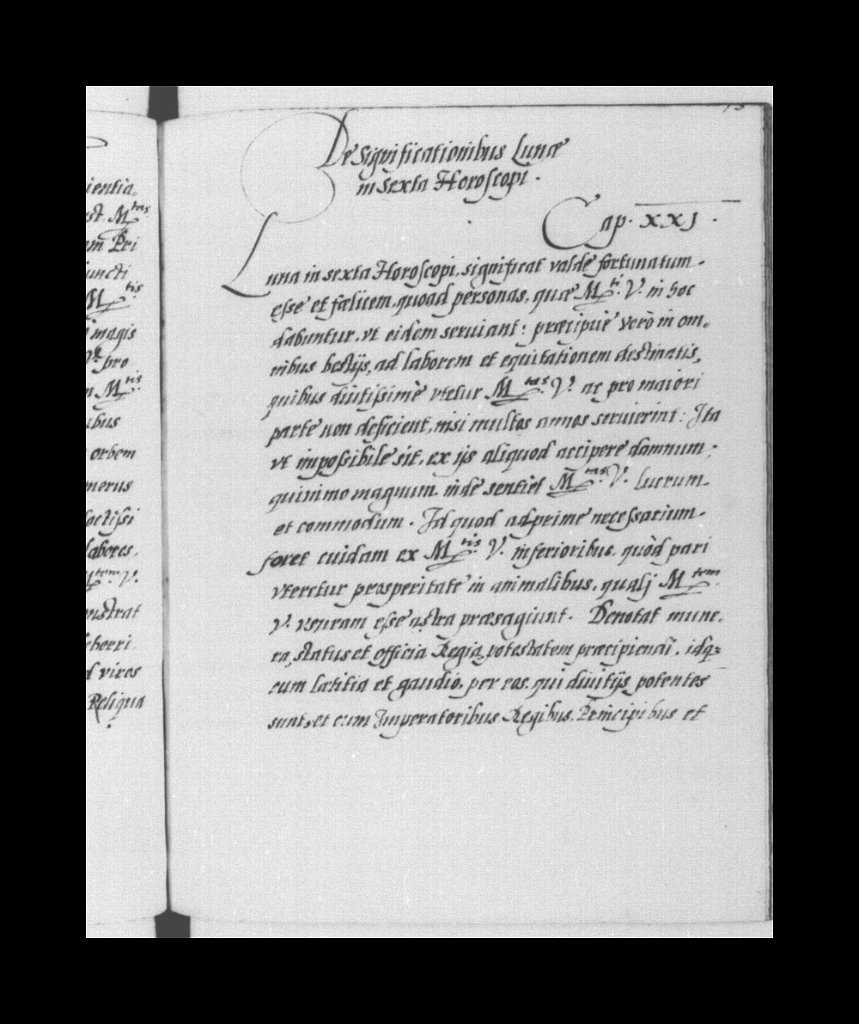 ientia.
st. M^tas.
m Pri
uncti
M^tis
magis
V^æ pro
n M^tis
ibus
orbem
nerus
octissi
labores.
M^tem V.
nstrat
eberri
d vires
Reliqua
De Significationibus Lunæ
in Sexta Horoscopi.
Cap. XXI.
Luna in sexta Horoscopi, significat valde fortunatum
esse et fœlicem, quoad personas, quæ M^ti V. in hoc
dabuntur, vt eidem seruiant: præcipuè verò in om-
nibus bestijs, ad laborem et equitationem destinatis,
quibus diutissimè vtetur M^tas V. ac pro maiori
parte non deficient, nisi multos annos seruierint: Ita
vt impossibile sit, ex ijs aliquod accipere damnum;
quinimo magnum inde sentiet M^tas V. lucrum
et commodum. Id quod adprime necessarium
foret cuidam ex M^tis V. inferioribus, quòd pari
vteretur prosperitate in animalibus, quali M^tem
V. vsuram esse astra præsagiunt. Denotat mune-
ra, status et officia Regia, potestatem præcipiendi, idq;
cum lætitia et gaudio, per eos, qui diuitijs potentes
sunt, et cum Imperatoribus Regibus, Principibus et